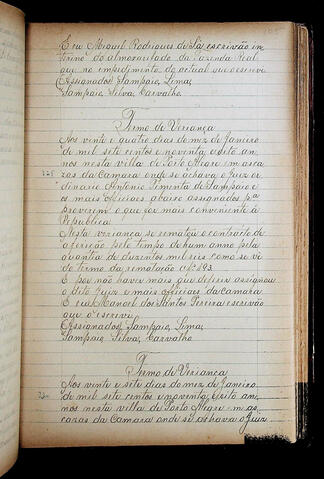 E eu Miguel Rodrigues de Sá escrivão in-
terino do almoxarifado da Fazenda Real
que no impedimento do actual escrevi
(Assignados) Sampaio, Lima,
Sampaio, Silva, Carvalho.
Termo de Veriança
Aos vinte e quatro dias do mez de Janeiro
de mil sete centos e noventa e oito an-
nos nesta villa de Porto Alegre em as ca-
zas da Camara onde se achava o Juiz or-
dinario Antonio Pimenta de Sampaio e
os mais officiaes abaixo assignados pª
proverem o que for mais conveniente á
Republica
Nesta veriança se rematou o contracto de
aferição pelo tempo de hum anno pela
quantia de duzentos mil reis como se vê
do termo da rematação afs 193.
E por não haver mais que deferir assignou
o dito Juiz e mais officiaes da Camara.
E eu Manoel dos Santos Pereira escrivão
que o escrevi
(Assignados) Sampaio, Lima,
Sampaio, Silva, Carvalho
Termo de Veriança
Aos vinte e sete dias do mez de Janeiro
de mil sete centos e noventa e oito an-
nos nesta villa de Porto Alegre em as
cazas da Camara onde se achava o Juiz